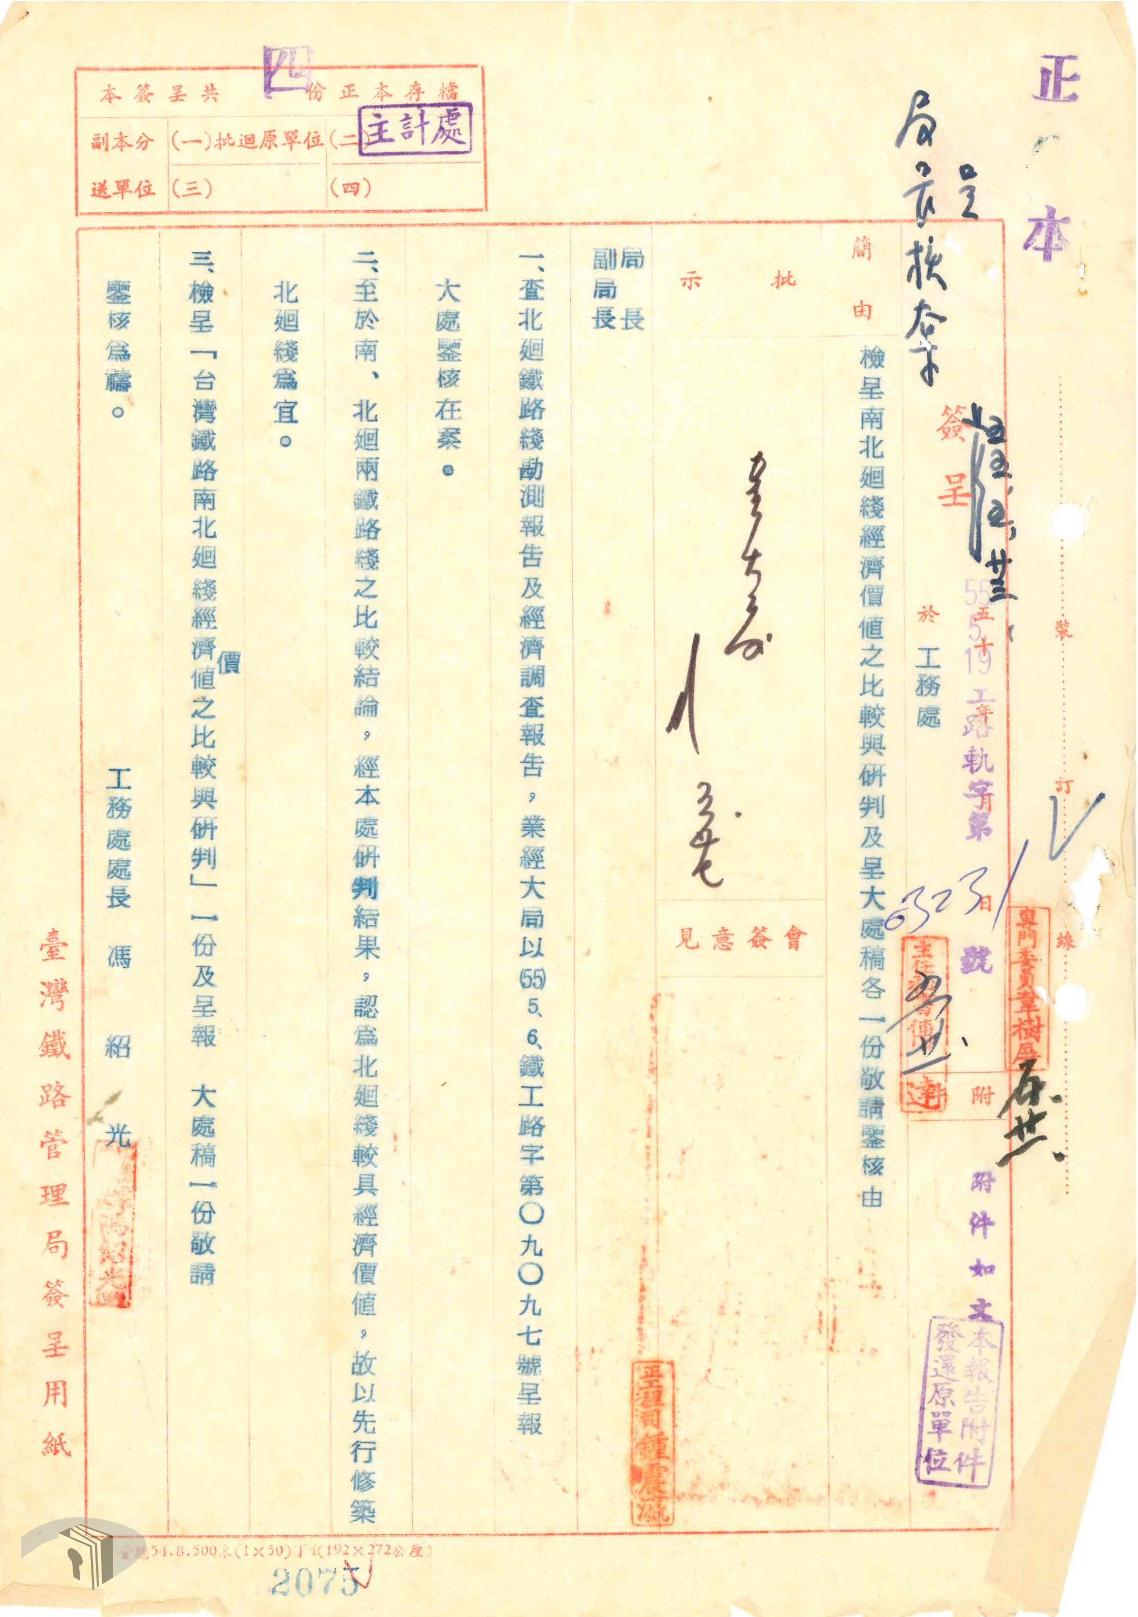 正本
本簽呈共四份正本存檔
副本分送單位
(一)批迴原單位
(二)主計處
(三)
(四)
裝
訂
線
簽呈
55 5 19 工路軌字第 號
五十 年 月 日
於 工務處
附件
附件如文
本報告附件
發還原單位
簡由
檢呈南北廻綫經濟價值之比較與研判及呈大處稿各一份敬請鑒核由
批示
會簽意見
局長
副局長
一、查北廻鐵路綫勘測報告及經濟調查報告，業經大局以(55)5、6、鐵工路字第〇九〇九七號呈報
大處鑒核在案。
二、至於南、北廻兩鐵路綫之比較結論，經本處研判結果，認為北廻綫較具經濟價值，故以先行修築
北廻綫為宜。
三、檢呈「台灣鐵路南北廻綫經濟價值之比較與研判」一份及呈報 大處稿一份敬請
鑒核為禱。
工務處處長 馮紹光
正工程司鍾震瀛
臺灣鐵路管理局簽呈用紙
2075